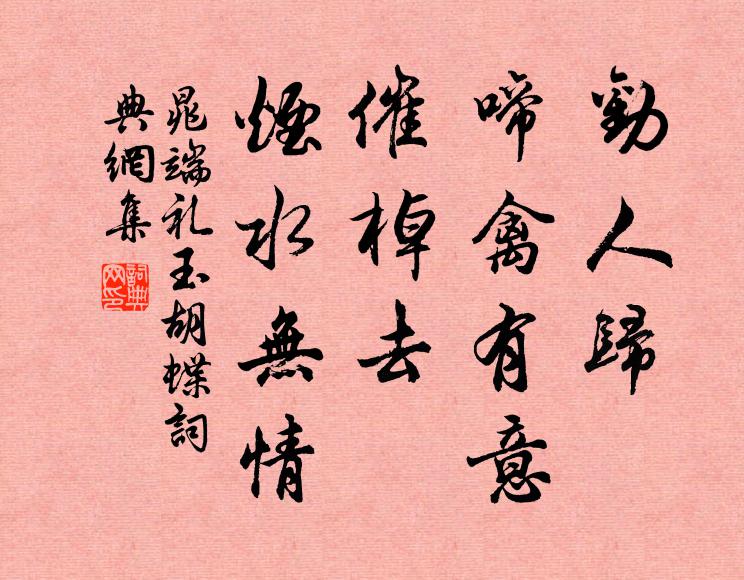 勸人歸
啼禽有意
催棹去
煙水無情
晁端礼玉胡蝶詞
典網集
詞典網印